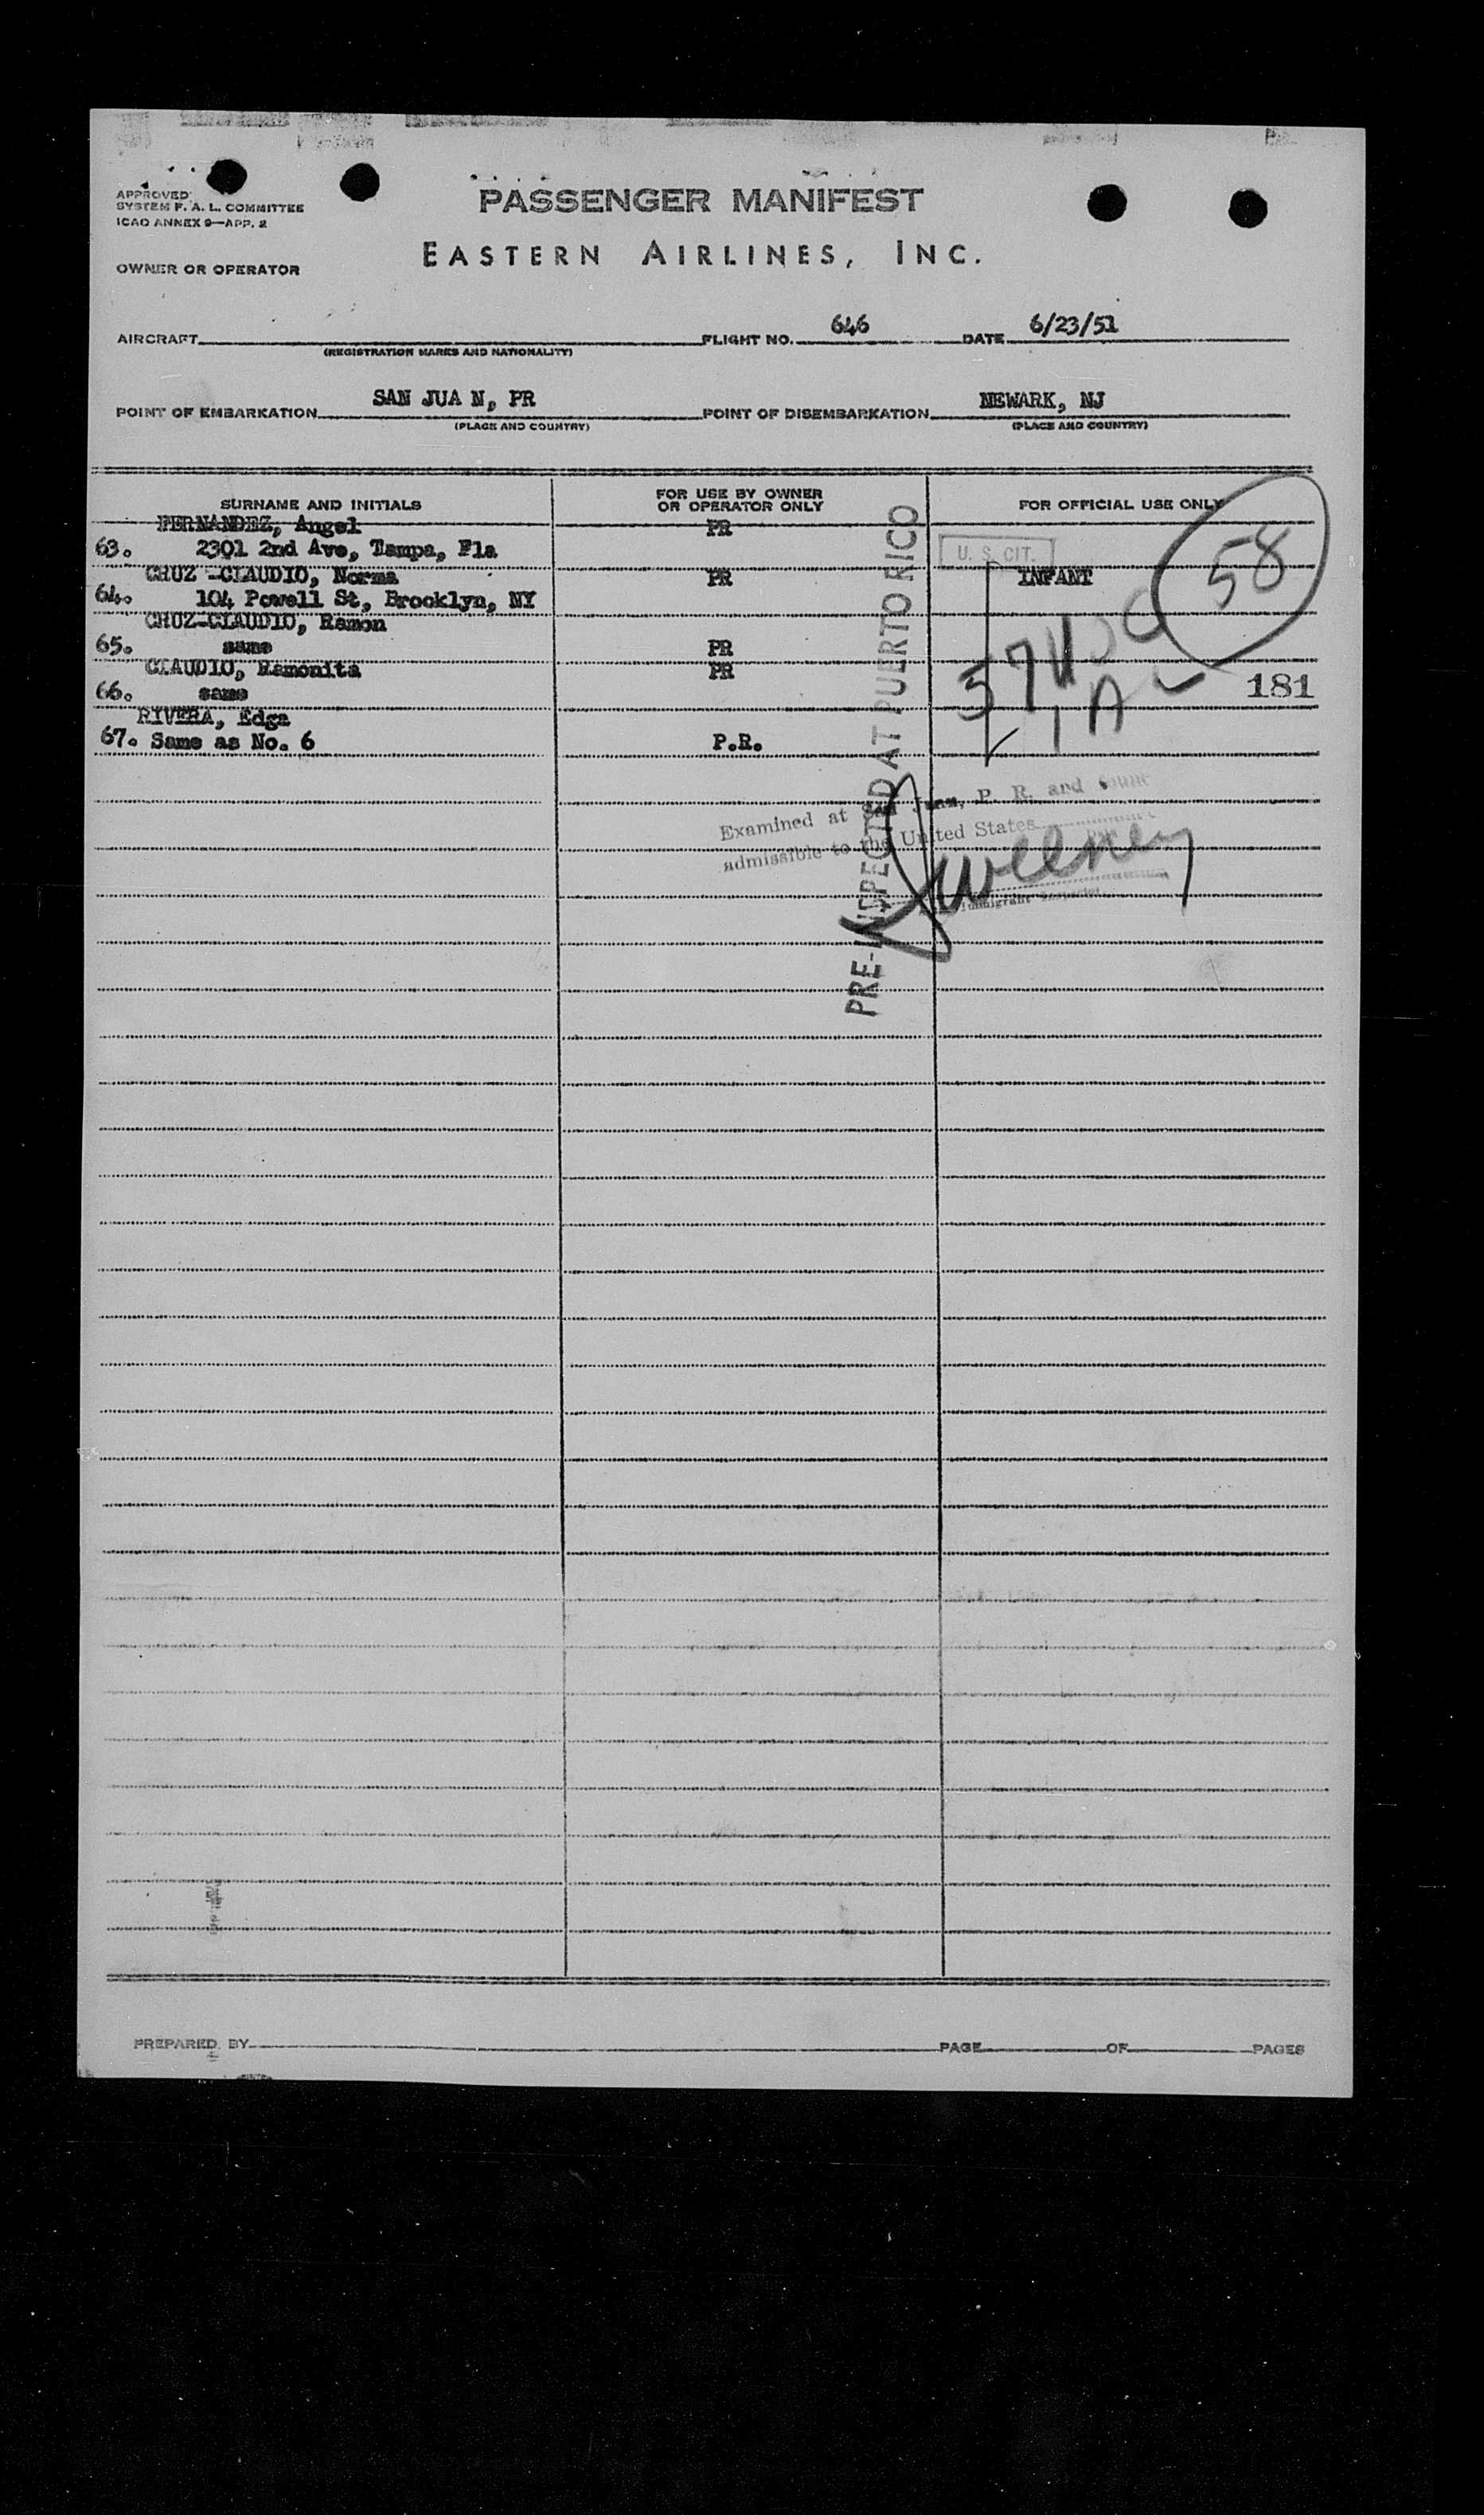 APPROVED
SYSTEM F. A. L. COMMITTEE
ICAO ANNEX 9—APP. 2
PASSENGER MANIFEST
EASTERN AIRLINES, INC.
OWNER OR OPERATOR
AIRCRAFT FLIGHT NO. 646 DATE 6/23/51
(REGISTRATION MARKS AND NATIONALITY)
POINT OF EMBARKATION SAN JUA N, PR POINT OF DISEMBARKATION NEWARK, NJ
(PLACE AND COUNTRY) (PLACE AND COUNTRY)
SURNAME AND INITIALS FOR USE BY OWNER OR OPERATOR ONLY FOR OFFICIAL USE ONLY
FERNANDEZ, Angel PR
63. 2301 2nd Ave, Tampa, Fla U. S. CIT. 58
CRUZ -CLAUDIO, Norma PR INFANT
64. 104 Powell St, Brooklyn, NY
CRUZ-CLAUDIO, Ramon
65. same PR
CLAUDIO, Ramonita PR
66. same 181
RIVERA, Edga
67. Same as No. 6 P.R.
1 A
PRE-INSPECTED AT PUERTO RICO
Examined at San Juan, P. R. and
admissible to the United States
Sweeney
Immigrant Inspector
PREPARED BY PAGE OF PAGES